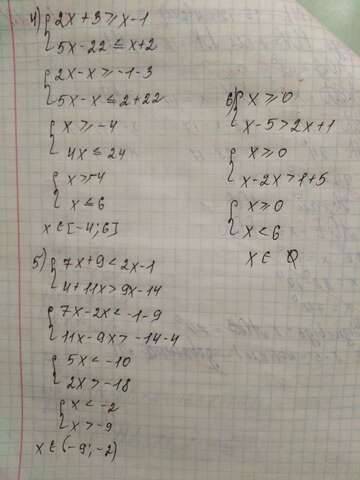 4) { 2x+3 ≥ x-1
5x-22 ≤ x+2
{ 2x-x ≥ -1-3
5x-x ≤ 2+22
{ x ≥ -4
4x ≤ 24
{ x ≥ -4
x ≤ 6
x ∈ [-4; 6]
5) { 7x+9 < 2x-1
4+11x > 9x-14
{ 7x-2x < -1-9
11x-9x > -14-4
{ 5x < -10
2x > -18
{ x < -2
x > -9
x ∈ (-9; -2)
6) { x ≥ 0
x-5 > 2x+1
{ x ≥ 0
x-2x > 1+5
{ x ≥ 0
x < 6
x ∈ Ø